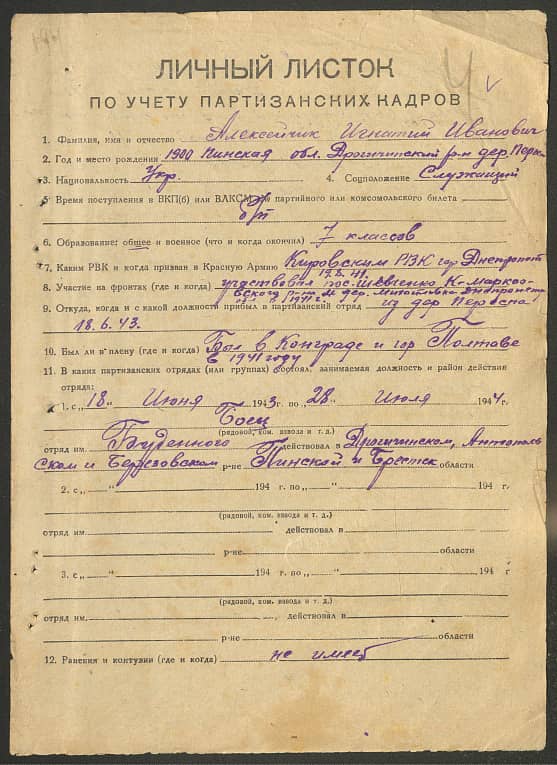 ЛИЧНЫЙ ЛИСТОК
ПО УЧЕТУ ПАРТИЗАНСКИХ КАДРОВ
1. Фамилия, имя и отчество Алексейчик Игнатий Иванович
2. Год и место рождения 1900 Пинская обл. Дрогичинский р-н дер.
3. Национальность Укр. 4. Соцположение Служащий
5. Время поступления в ВКП(б) или ВЛКСМ, № партийного или комсомольского билета
б/п
6. Образование: общее и военное (что и когда окончил) 7 классов
7. Каким РВК и когда призван в Красную Армию Кировским РВК гор Днепропетр
19.8.41.
8. Участие на фронтах (где и когда) участвовал пос. Шевченко
р-на дер.
1941 г.
9. Откуда, когда и с какой должности прибыл в партизанский отряд из дер
18.6.43.
10. Был ли в плену (где и когда) Был в Конграде и гор Полтаве
в 1941 году
11. В каких партизанских отрядах (или группах) состоял, занимаемая должность и район действия
отряда:
1. с „18" Июня 1943 г. по „28" Июля 1944 г.
Боец
(рядовой, ком. взвода и т. д.)
отряд им. Буденного действовал в Дрогичинском, Антополь
ском и Березовском р-не Пинской и Брестск области
2. с „ " 194 г. по „ " 194 г.
(рядовой, ком. взвода и т. д.)
отряд им. действовал в
р-не области
3. с „ " 194 г. по „ " 194 г
(рядовой, ком. взвода и т. д.)
отряд им. действовал в
р-не области
12. Ранения и контузии (где и когда) не имеет